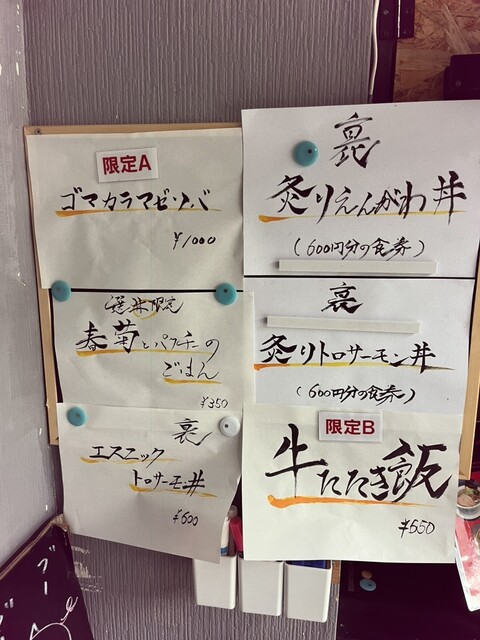 限定A
ゴマカラマゼソバ
¥1000
限定
春菊とパクチーの
ごはん
¥350
裏
エスニック
トロサーモン丼
¥600
裏
炙りえんがわ丼
(600円分の食券)
裏
炙りトロサーモン丼
(600円分の食券)
限定B
牛たたき飯
¥550